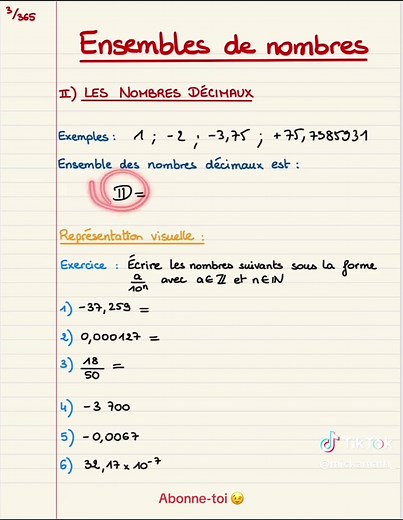 3/365
Ensembles de nombres
II) LES NOMBRES DÉCIMAUX
Exemples : 1 ; -2 ; -3,75 ; +75,7985931
Ensemble des nombres décimaux est :
𝔻 =
Représentation visuelle :
Exercice : Écrire les nombres suivants sous la forme
a/10ⁿ avec a ∈ ℤ et n ∈ ℕ
1) -37,259 =
2) 0,000127 =
3) 18/50 =
4) -3 700
5) -0,0067
6) 32,17 × 10⁻⁷
TikTok
Abonne-toi 😉